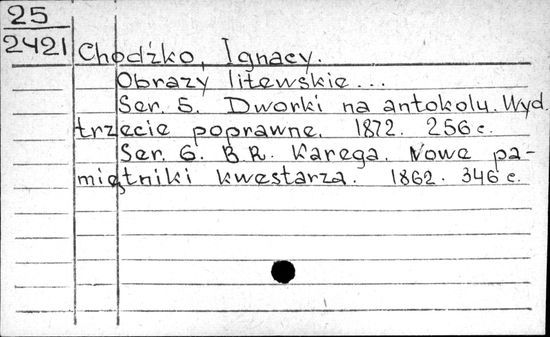 25
2421
Chodźko, Ignacy.
Obrazy litewskie...
Ser. 5. Dworki na antokolu. Wyd.
trzecie poprawne. 1872. 256 c.
Ser. 6. B. R. Karega. Nowe pa-
miętniki kwestarza. 1862. 346 c.